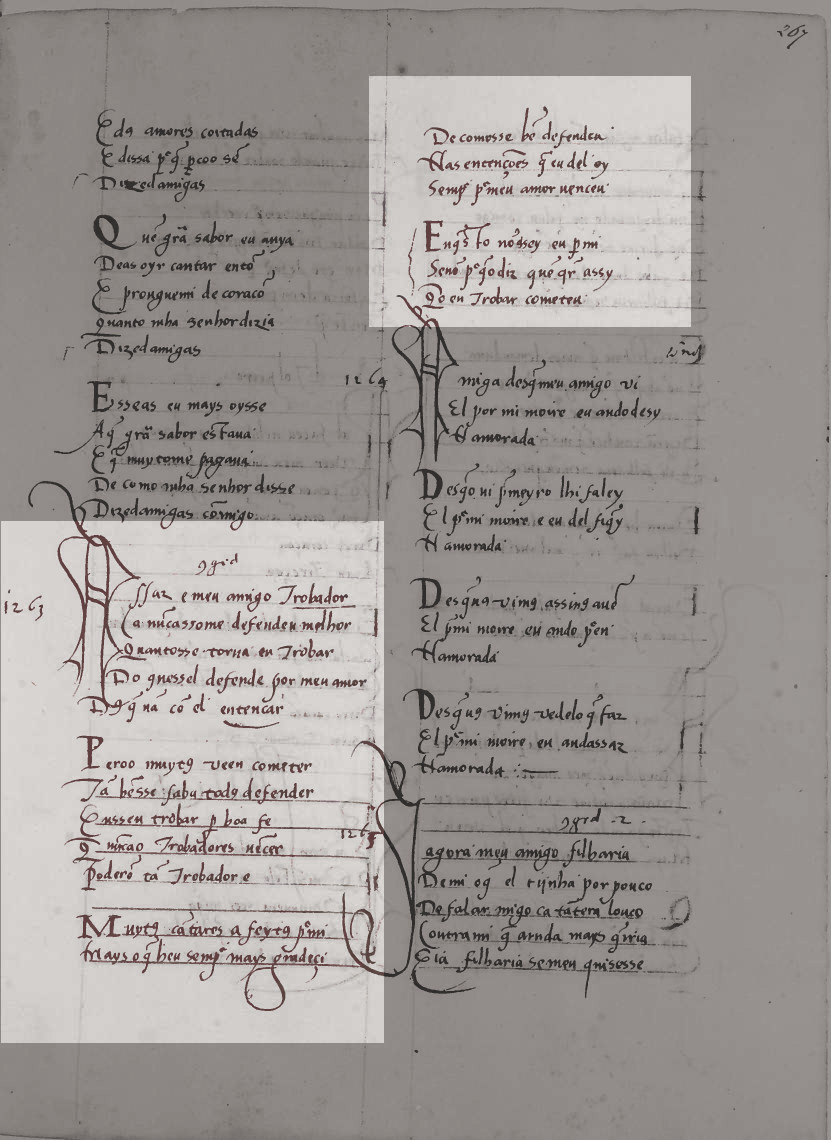 E das amores coitadas
E dissa por que perçoo sen
Dizedamigas
Que grã sabor eu auya
Deas oyr cantar entõ
E prouguemi de coraçõ
quanto mha senhor dizia
Dizedamigas
Esseas eu mays oysse
Aq̃ grã sabor estaua
E q̃ muytome pagaua
De como mha senhor disse
Dizedamigas cõmigo
1263
Assaz e meu amigo Trobador
Ca nũcassome defendeu melhor
Quantosse torna en Trobar
Do quessel defende por meu amor
Daq̃ uã cõ el entençar
Peroo muytꝯ ueen cometer
Tã bẽsse sabu todꝯ defender
E usseu trobar ꝑ boa fe
Q̃ nũcao Trobadores uẽcer
Poderõ tã Trobador e
Muytꝯ cãtares a feytꝯ por mi
Mays o q̃ lheu semp̃ mays gradeçi
267
De comosse bẽ defendeu
Nas entenções q̃ eu del oy
Semp̃ por meu amor uenceu
E aqsto nõssey eu ꝑ mi
Senõ por q̃o diz quē qr̃ assy
Q̃o en Trobar cometeu
1264
Amiga desq̃meu amigo ui
El por mi moire eu ando desy
Namorada
Desq̃o ui p̃meyro lhi faley
El por mi moire e eu del fiq̃y
Namorada
Desq̃nꝯ uimꝯ assy nꝯ auẽ
El por mi moire eu ando por en
Namorada
Desq̃nꝯ uimꝯ uedelo q̃ faz
El por mi moire eu andassaz
Namorada
1265
agora meu amigo filharia
De mi oq̃ el tijnha por pouco
De falar migo ca tãtera louco
Contra mi q̃ ainda mays q̃ria
Eia filharia se meu quisesse